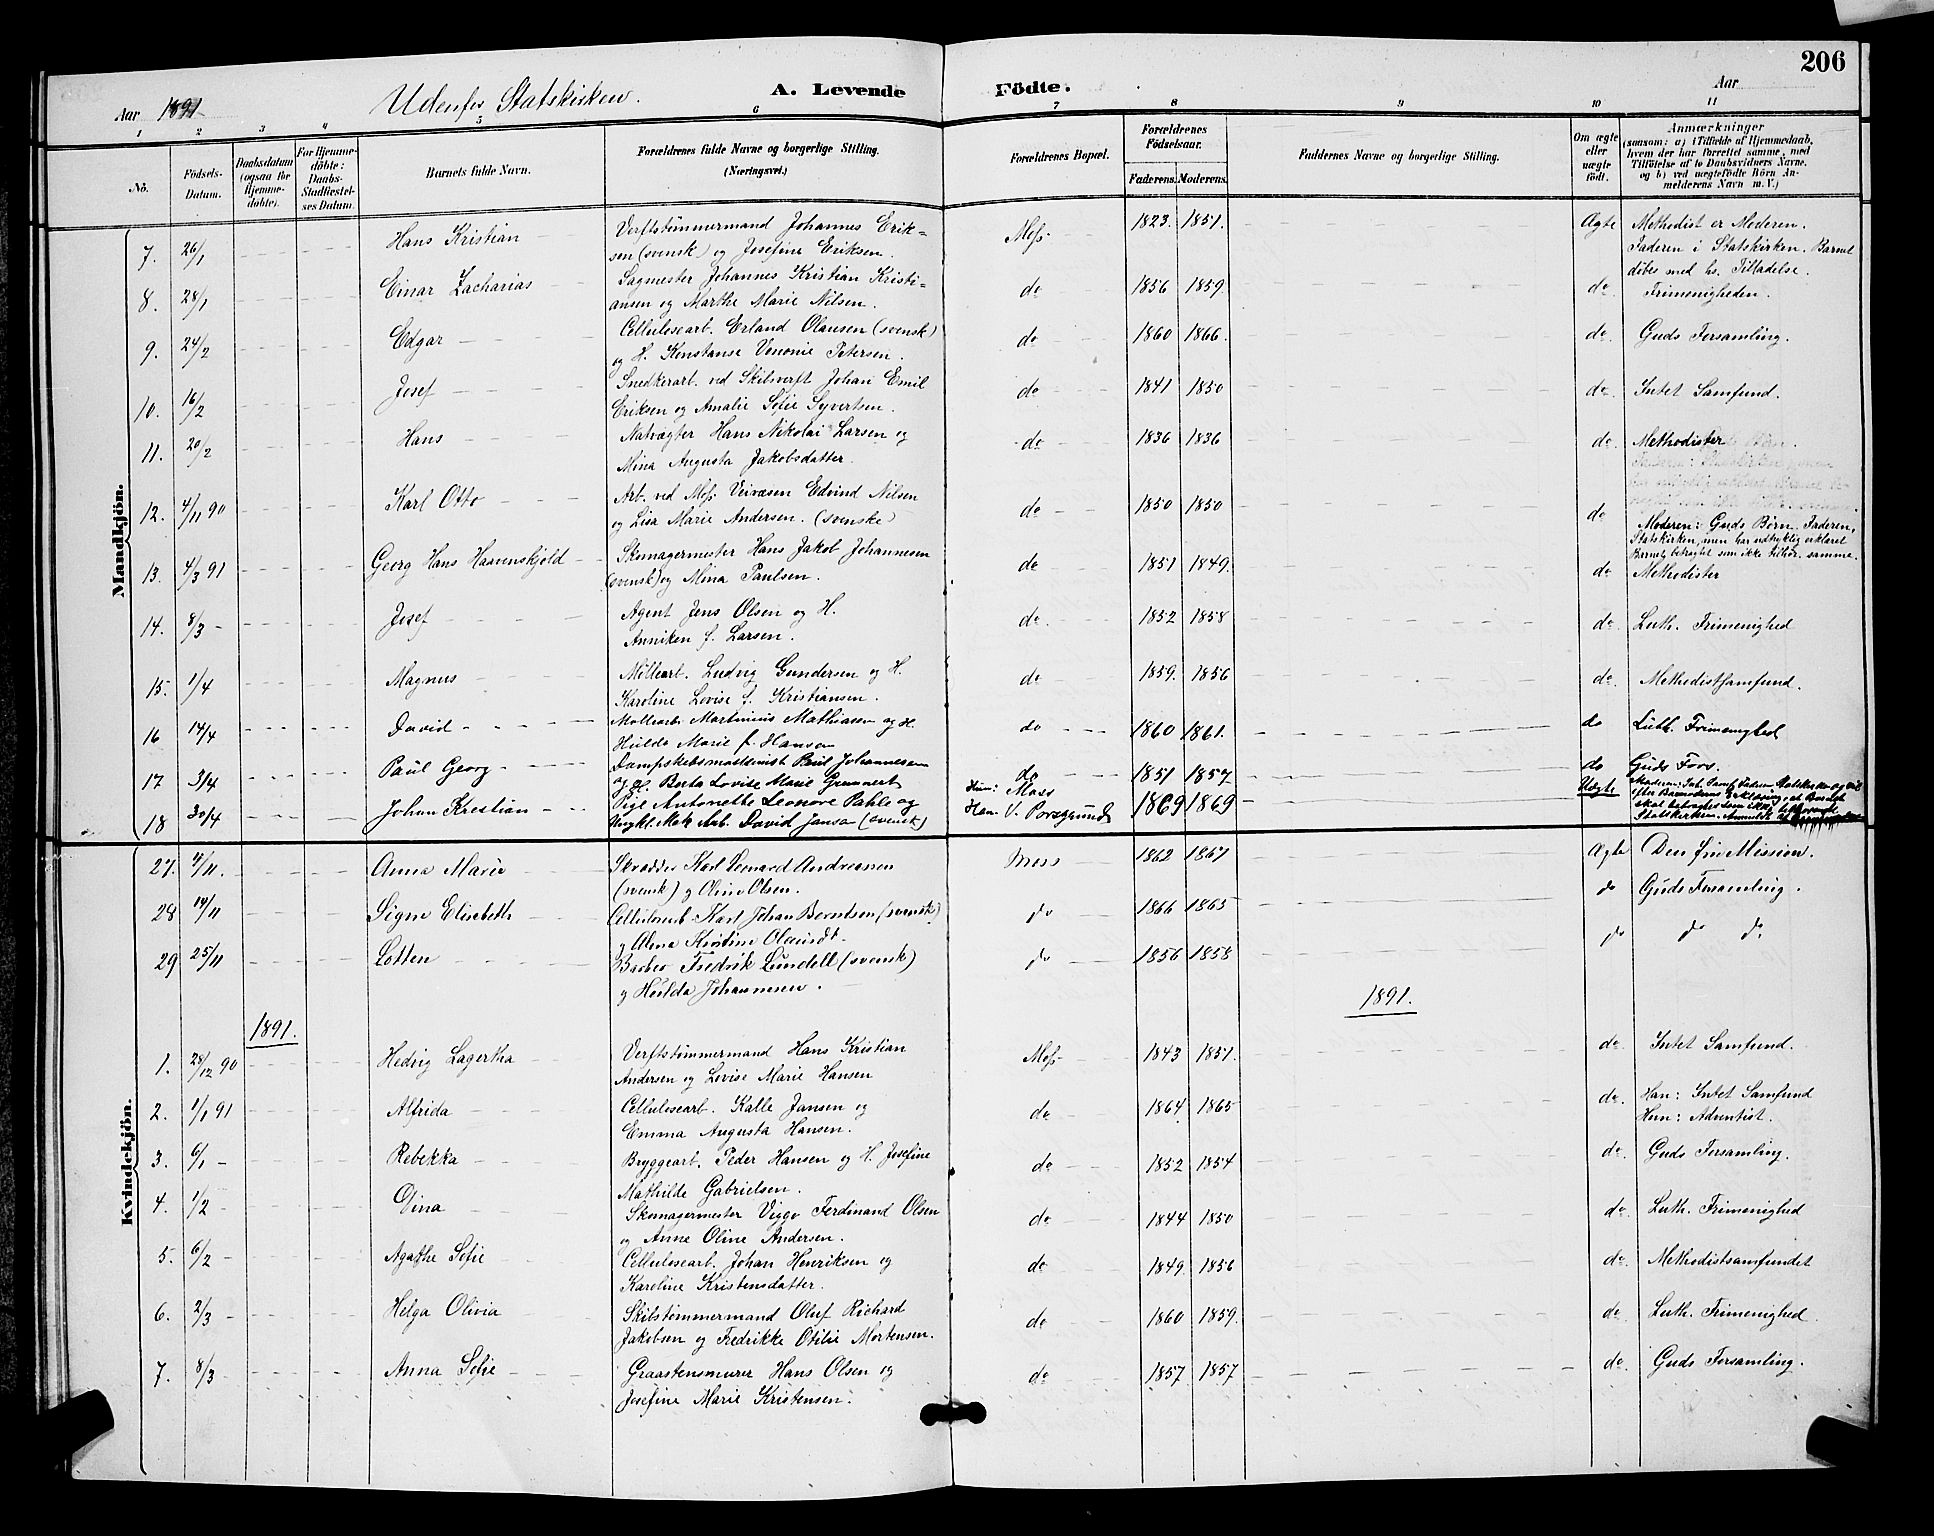 206
Aar 1891
Udenfor Statskirken.
A. Levende Födte.
Aar
1 2 3 4 5 6 7 8 9 10 11
No.
Födsels-Datum.
Daabsdatum (ogsaa for Hjemmedöbte).
For Hjemmedöbte: Daabs-Stadfæstelses Datum.
Barnets fulde Navn.
Forældrenes fulde Navne og borgerlige Stilling. (Næringsvei.)
Forældrenes Bopæl.
Forældrenes Födselsaar.
Faderens. Moderens.
Faddernes Navne og borgerlige Stilling.
Om ægte eller uægte födt.
Anmærkninger
(saasom: a) i Tilfælde af Hjemmedaab, hvem der har forrettet samme, med Tilföielse af to Daabsvidners Navne. og b) ved uægtefödte Börn Anmelderens Navn m. V.)
Mandkjön.
7. 26/1 Hans Kristian Verftstømmermand Johannes Erik= Moss 1823. 1851. Ægte Methodist er Moderen.
sen (svensk) og Josefine Eriksen. Faderen i Statskirken. Barnet
døbes med hs. Tilladelse.
8. 28/1 Einar Zacharias Sagmester Johannes Kristian Kristi= do 1856 1859 do Frimenigheden.
ansen og Marthe Marie Nilsen.
9. 24/2 Edgar Cellulosearb. Erland Olausen (svensk) do 1860 1866. do. Guds Forsamling.
og H. Konstanse Venonie Petersen.
10. 16/2 Josef Snedkerarb. ved Skibsverft Johan Emil do 1841 1850 do. Intet Samfund.
Eriksen og Amalie Sofie Syvertsen.
11. 20/2 Hans Natvægter Hans Nikolai Larsen og do 1836 1836 do. Methodister
Mina Augusta Jakobsdatter.
12. 4/11 90 Karl Otto Arb. ved Moss Veivæsen Edvind Nilsen do 1850 1850 do Moderen: Guds Børn. Faderen,
og Lisa Marie Andersen. (svenske) Statskirken, men har udtrykkelig erklæret
Barnet betragtet som ikke tilhør. samme.
13. 4/3 91 Georg Hans Haavenskjold Skomagermester Hans Jakob Johannesen do 1851 1849. do Methodister
(svensk) og Mina Paulsen.
14. 8/3 - Josef Agent Jens Olsen og H. do. 1852 1858 do. Luth. Frimenighed
Anniken f. Larsen.
15. 1/4 Magnus Møllearb. Ludvig Gundersen og H. do 1859. 1856 do. Methodistsamfund.
Karoline Lovise f. Kristiansen.
16 14/4 David Møllearb. Martinius Mathiasen og H. do 1860 1861. do Luth. Frimenighed
Hulda Marie f. Hansen
17 3/4 Paul Georg Dampskibsmaskinist Paul Johannesen do 1851 1857 do Guds Fors.
og H. Berta Lovise Marie Grunnert
18 30/4 Johan Kristian Pige Antonette Leonore Pahle og Hun: Moss 1869 1869 Uægte
Ungkl. Mek Arb. David Janson (svensk) Han. V. Porsgrund
27. 4/11. Anna Marie Skrædder Karl Leonard Andreassen Moss 1862 1867 Ægte Den fri Mission.
(svensk) og Oline Olsen.
28 14/11 Signe Elisabeth Cellulosearb. Karl Johan Berntsen (svensk) do 1866 1865 do Guds Forsamling.
og Alma Kristine Olausdt.
29 25/11 Lotten Barber Fredrik Lundell (svensk) do 1856 1858 do do do.
og Hulda Johannesen.
1891. 1891.
Kvindekjön.
1. 28/12 90 Hedvig Lagertha Verftstømmermand Hans Kristian Moss 1843 1851. do. Intet Samfund.
Andersen og Lovise Marie Hansen
2. 1/1 91 Alfrida Cellulosearb. Kalle Jansen og do 1864 1865 do. Han: Intet Samfund
Emma Augusta Hansen. Hun: Adventist.
3. 6/1 - Rebekka Bryggearb. Peder Hansen og H. Josefine do 1852 1854 do. Guds Forsamling.
Mathilde Gabrielsen.
4. 1/2 - Dina Skomagermester Viggo Ferdinand Olsen do 1844 1850 do. Luth. Frimenighed
og Anne Oline Andersen.
5. 6/2 - Agathe Sofie Cellulosearb. Johan Henriksen og do 1849. 1856 do. Methodistsamfundet
Karoline Kristensdatter.
6. 2/3 - Helga Olivia Skibstømmermand Oluf Richard do 1860 1859. do. Luth. Frimenighed.
Jakobsen og Fredrikke Otilie Mortensen.
7. 8/3 - Anna Sofie Graastensmurer Hans Olsen og do 1857 1857 do. Guds Forsamling.
Josefine Marie Kristensen.